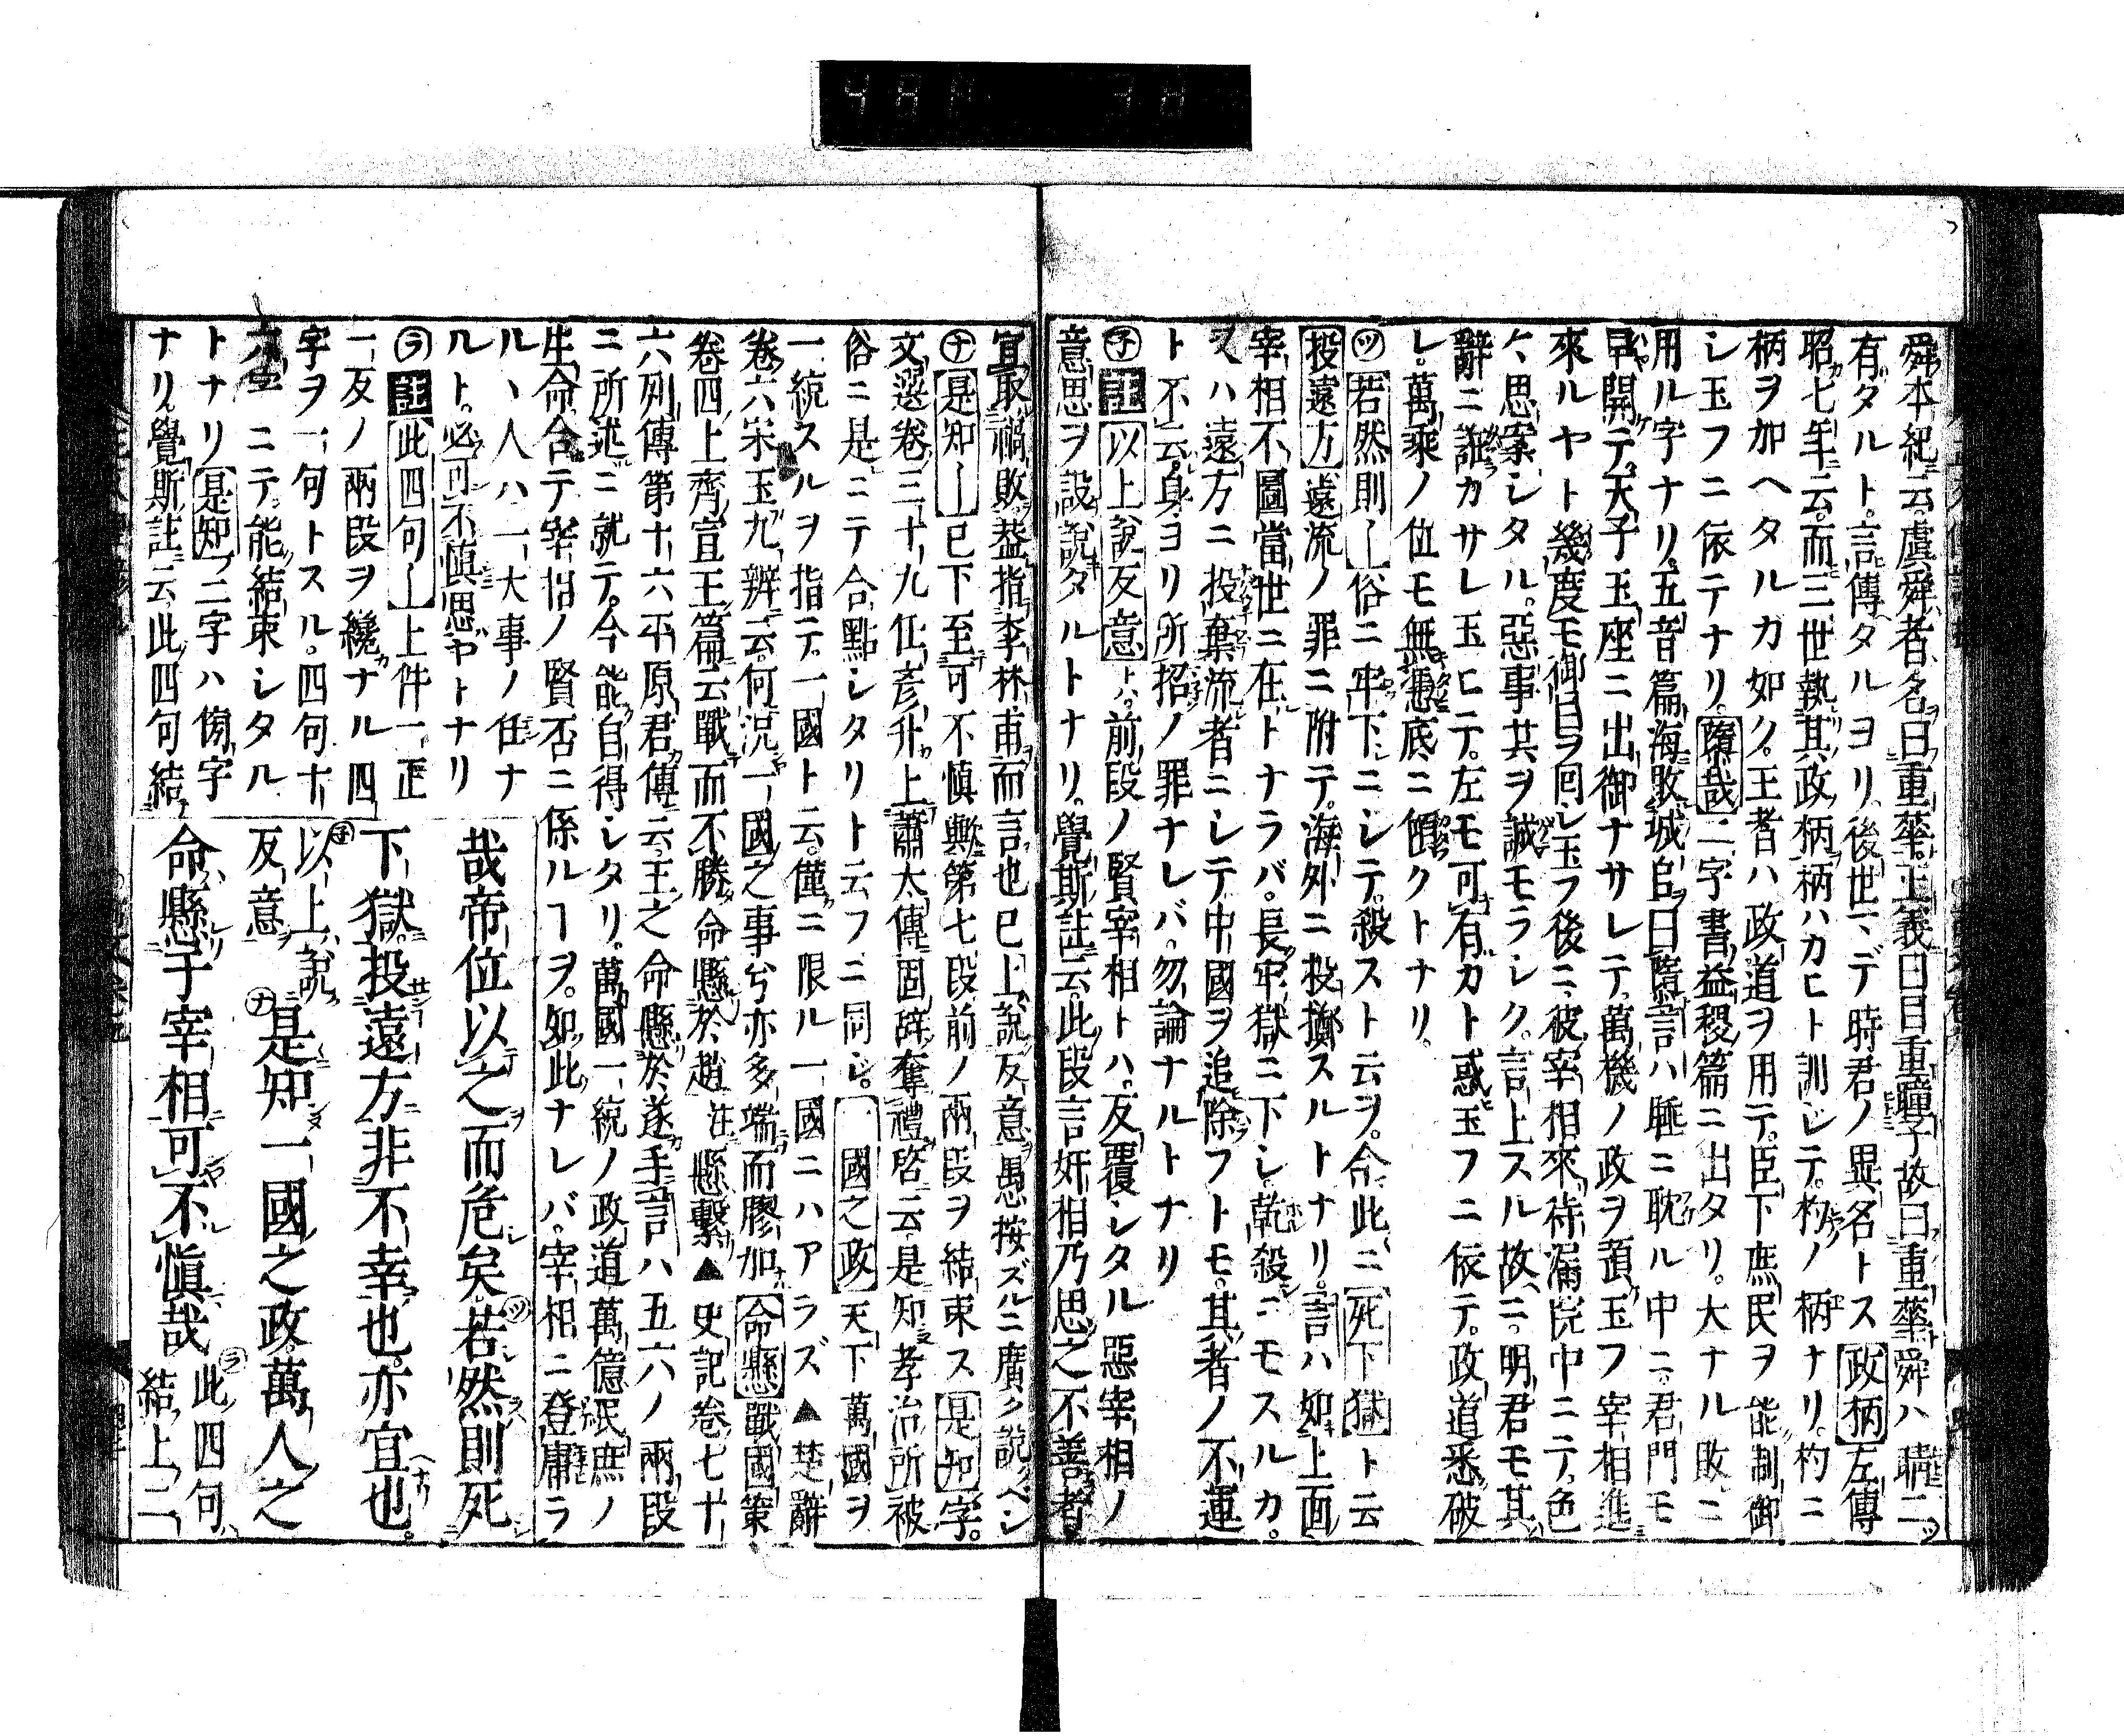 舜本紀云虞舜者名曰重華正義曰目重瞳子故曰重華舜ハ睛二ツ
有タルト言傳タルヨリ後世マデ時君ノ異名トス政柄左傳
昭七年云而三世執其政柄柄ハカヒト訓シテ杓ノ柄ナリ杓ニ
柄ヲ加ヘタルカ如ク王者ハ政道ヲ用テ臣下庶民ヲ能制御
シ玉フニ依テナリ隳哉二字書益稷篇ニ出タリ大ナル敗ニ
用ル字ナリ五音篇海敗城皀曰隳言ハ睡ニ耽ル中ニ君門モ
早開テ天子玉座ニ出御ナサレテ萬機ノ政ヲ預玉フ宰相進
來ルヤト幾度モ御目ヲ回シ玉フ後ニ彼宰相來待漏院中ニテ色
々思案シタル惡事其ヲ誠モラシク言上スル故ニ明君モ其
辭ニ誑カサレ玉ヒテ左モ可有カト惑玉フニ依テ政道悉破
レ萬乘ノ位モ無憑底ニ傾クトナリ
ツ若然則俗ニ牢下ニシテ殺スト云ヲ合此ニ死下獄ト云
投遠方遠流ノ罪ニ附テ海外ニ投擲スルトナリ言ハ如上面
宰相不圖當世ニ在トナラバ長牢獄ニ下シ乾殺ニモスルカ
又ハ遠方ニ投棄流者ニシテ中國ヲ追除フトモ其者ノ不運
ト不云身ヨリ所招ノ罪ナレバ勿論ナルトナリ
子註以上說反意トハ前段ノ賢宰相トハ反覆シタル惡宰相ノ
意思ヲ設說タルトナリ覺斯註云此段言奸相乃思之不善者
宜取禍敗葢指李林甫而言也已上說反意愚按ズルニ廣ク說クベシ
ナ是知已下至可不慎歟第七段前ノ兩段ヲ結束ス是知字
文選卷三十九任彥升上蕭太傅固辭奪禮啓云是知孝治所被
俗ニ是ニテ合點シタリト云フニ同シ一國之政天下萬國ヲ
一統スルヲ指テ一國ト云僅ニ限ル一國ニハアラズ▲楚辭
卷六宋玉九辨云何況一國之事兮亦多端而膠加命懸戰國策
卷四上齊宣王篇云戰而不勝命懸於趙注懸繫▲史記卷七十
六列傳第十六平原君傳云王之命懸於遂手言ハ五六ノ兩段
ニ所述ニ就テ今能自得シタリ萬國一統ノ政道萬億民庶ノ
生命合テ宰相ノ賢否ニ係ルヿヲ如此ナレバ宰相ニ登庸ラ
ルヽ人ハ一大事ノ任ナ
ルト必可不慎思ヤトナリ
ラ註此四句上件一正
一反ノ兩段ヲ纔ナル四
字ヲ一句トスル四句十
六字ニテ能結束シタル
トナリ是知二字ハ傍字
ナリ覺斯註云此四句結
哉帝位以之而危矣若然則死
下獄投遠方非不幸也亦宜也
以上說反意 是知一國之政萬人之
命懸于宰相可不慎哉 此四句結上二